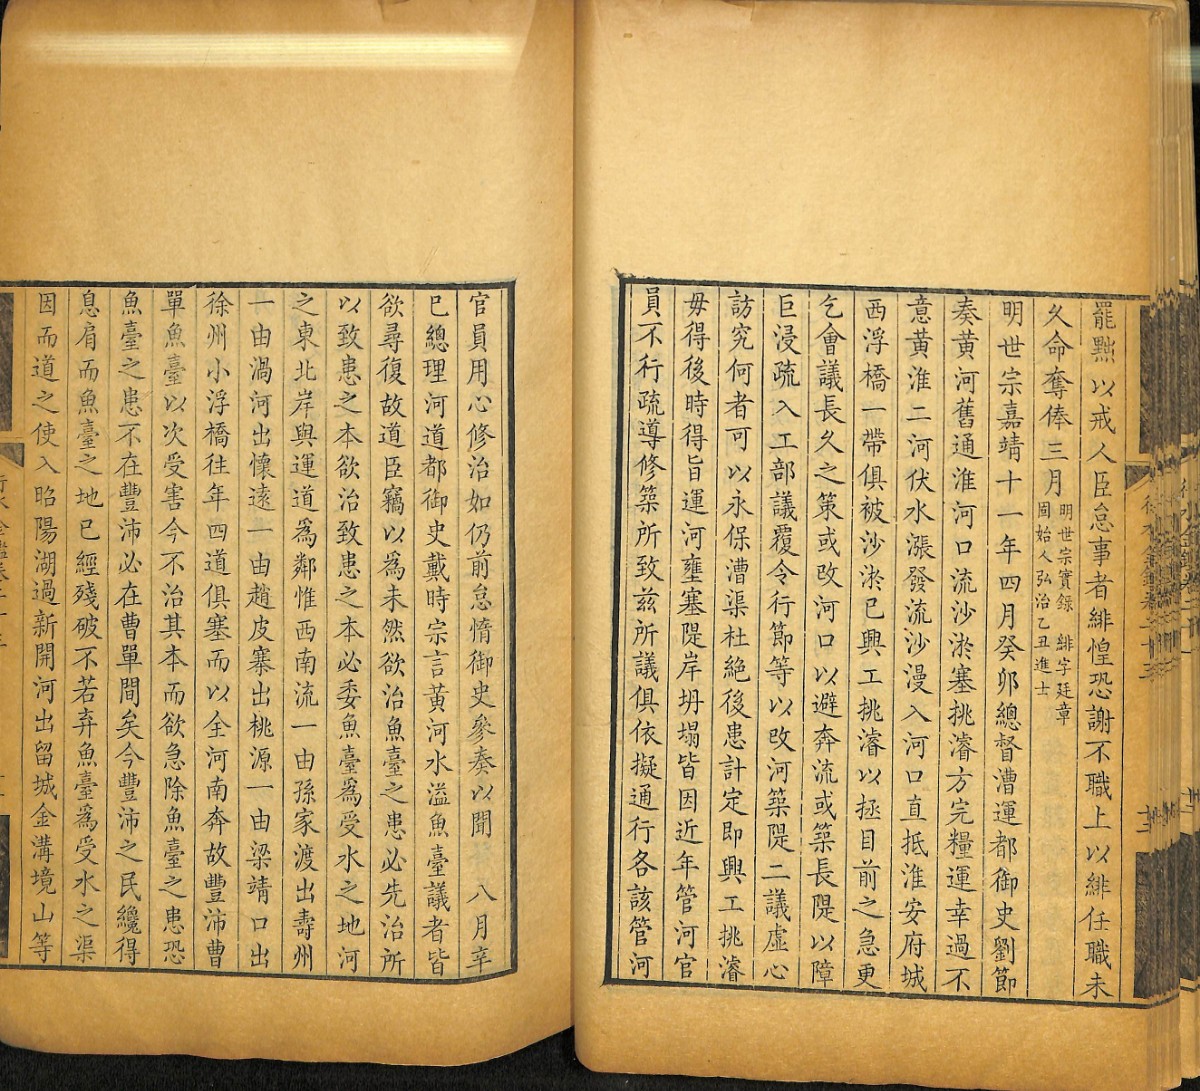 罷黜以戒人臣怠事者緋惶恐謝不職上以緋任職未
久命奪俸三月明世宗實錄 緋字廷章
固始人弘治乙丑進士
明世宗嘉靖十一年四月癸卯總督漕運都御史劉節
奏黃河舊通淮河口流沙淤塞挑濬方完糧運幸過不
意黃淮二河伏水漲發流沙漫入河口直抵淮安府城
西浮橋一帶俱被沙淤已興工挑濬以拯目前之急更
乞會議長久之策或改河口以避奔流或築長隄以障
巨浸疏入工部議覆令行節等以改河築隄二議虛心
訪究何者可以永保漕渠杜絕後患計定即興工挑濬
毋得後時得旨運河壅塞隄岸坍塌皆因近年管河官
員不行疏導修築所致兹所議俱依擬通行各該管河
官員用心修治如仍前怠惰御史參奏以聞 八月辛
巳總理河道都御史戴時宗言黃河水溢魚臺議者皆
欲尋復故道臣竊以為未然欲治魚臺之患必先治所
以致患之本欲治致患之本必委魚臺爲受水之地河
之東北岸與運道爲鄰惟西南流一由孫家渡出壽州
一由渦河出懷遠一由趙皮寨出桃源一由梁靖口出
徐州小浮橋往年四道俱塞而以全河南奔故豐沛曹
單魚臺以次受害今不治其本而欲急除魚臺之患恐
魚臺之患不在豐沛必在曹單間矣今豐沛之民纔得
息肩而魚臺之地已經殘破不若弃魚臺爲受水之渠
因而道之使入昭陽湖過新開河出留城金溝境山等